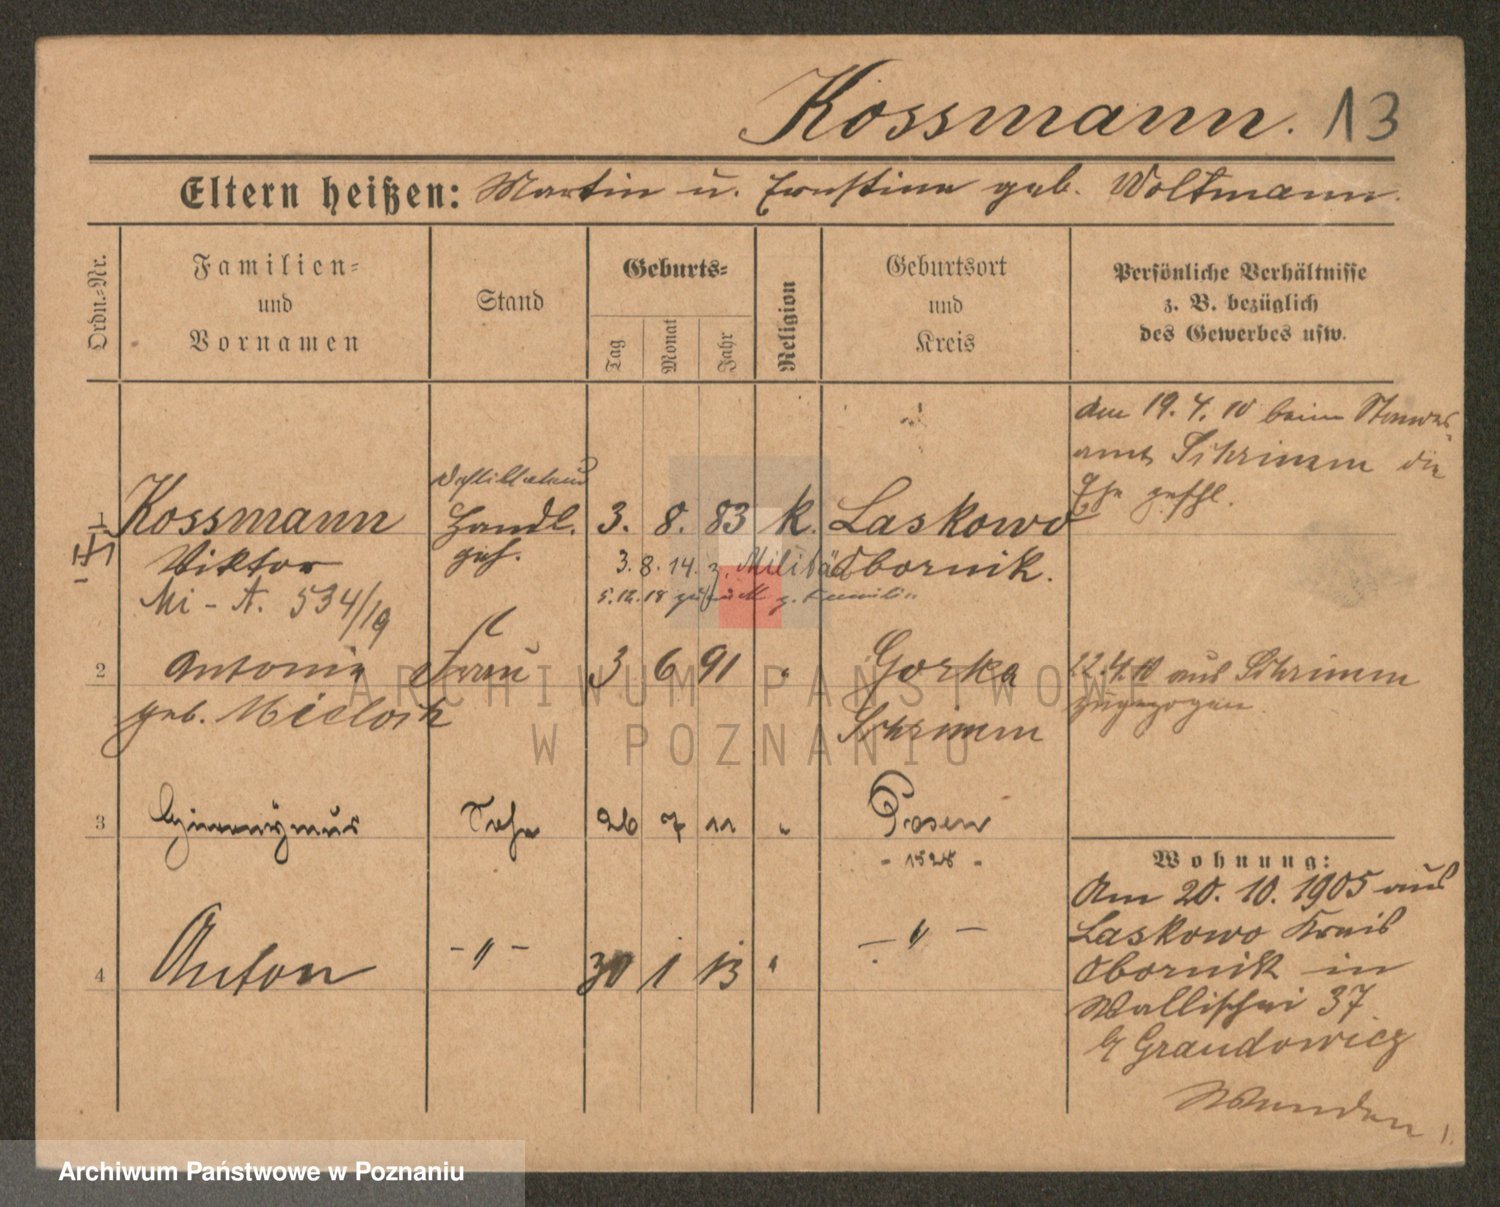 Kossmann. 13
Eltern heißen: Martin u. Ernstine geb. Woltmann.
Ordn.-Nr.
Familien-
und
Vornamen
Stand
Geburts-
Tag
Monat
Jahr
Religion
Geburtsort
und
Kreis
Persönliche Verhältnisse
z. B. bezüglich
des Gewerbes usw.
1 Kossmann Handl. 3. 8. 83 k. Laskowo
Viktor geh. Obornik.
3. 8. 14. z. Militär
Mi - A. 534/19
5.12.18 zurück z. Familie
am 19.4.10 beim Standes-
amt Schrimm die
Ehe geschl.
2 Antonie Frau 3 6 91 " Gorka
geb. Mielosch Schrimm
22.4.10 aus Schrimm
zugezogen.
3 Sohn 26 7 11 " Posen
- 1528 -
4 Anton - " - 30 1 13 " - " -
Wohnung:
Am 20. 10. 1905 aus
Laskowo Kreis
Obornik in
Wallischei 37
b/ Grandowicz
Wenden
ARCHIWUM PAŃSTWOWE
W POZNANIU
Archiwum Państwowe w Poznaniu